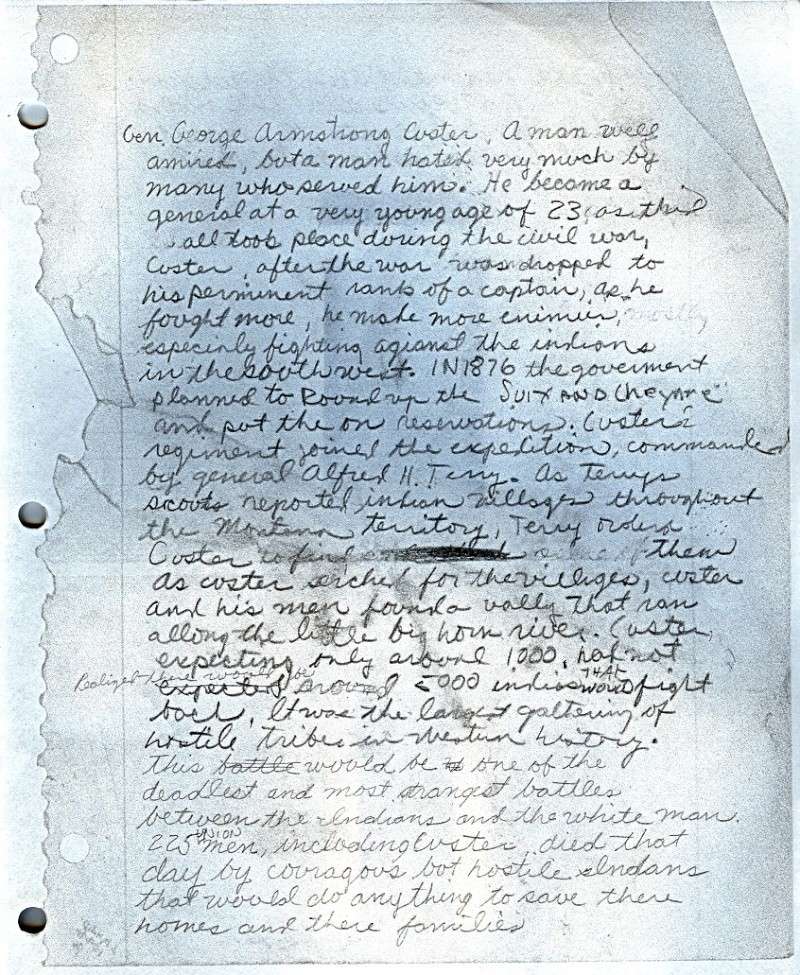 Gen. George Armstrong Custer. A man well
amired, but a man hated very much by
many who served him. He become a
general at a very young age of 23, as this
all took place during the civil war,
Custer, after the war was dropped to
his perminent rank of a captain, as he
fought more, he made more enimies, mostly
especialy fighting agianst the indians
in the south west. IN 1876 the goverment
planned to Round up the SUIX AND Cheyene
and put the on reservations. Custers
regiment joined the expedition, commanded
by general Alfred H. Terry. As Terrys
scouts reported indian villages throughout
the Montana territory, Terry ordered
Custer to find them
As custer serched for the villiges, custer
and his men found a vally that ran
allong the little big horn river. Custer,
expecting only around 1,000, had not
Realized there would be
expected around 5000 indians THAT would fight
back, It was the largest gathering of
hostile tribes in Western history.
this battle would be one of the
deadlest and most strangest battles
between the Indians and the white man.
225 UNION men, including Custer, died that
day by couragous but hostile Indans
that would do anything to save there
homes and there families